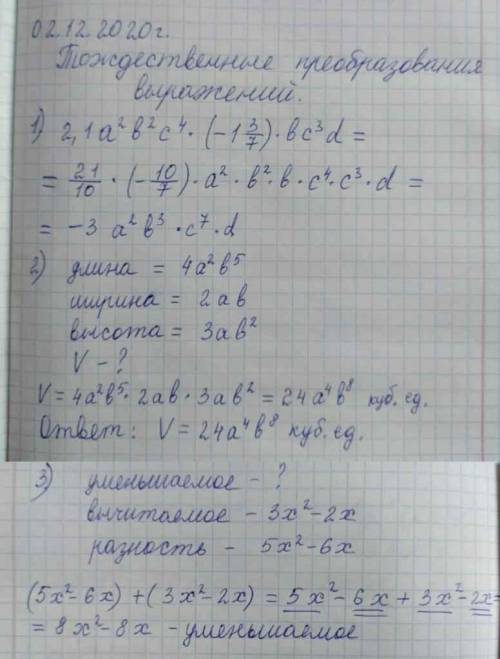 02.12.2020г.
Тождественные преобразования
выражений.
1) 2,1a²b²c⁴ · (-1 3/7) · bc³d =
= 21/10 · (-10/7) · a² · b² · b · c⁴ · c³ · d =
= -3 a²b³ · c⁷ · d
2) длина = 4a²b⁵
ширина = 2ab
высота = 3ab²
V - ?
V = 4a²b⁵ · 2ab · 3ab² = 24a⁴b⁸ куб. ед.
Ответ: V = 24a⁴b⁸ куб. ед.
3) уменьшаемое - ?
вычитаемое - 3x² - 2x
разность - 5x² - 6x
(5x² - 6x) + (3x² - 2x) = 5x² - 6x + 3x² - 2x =
= 8x² - 8x - уменьшаемое